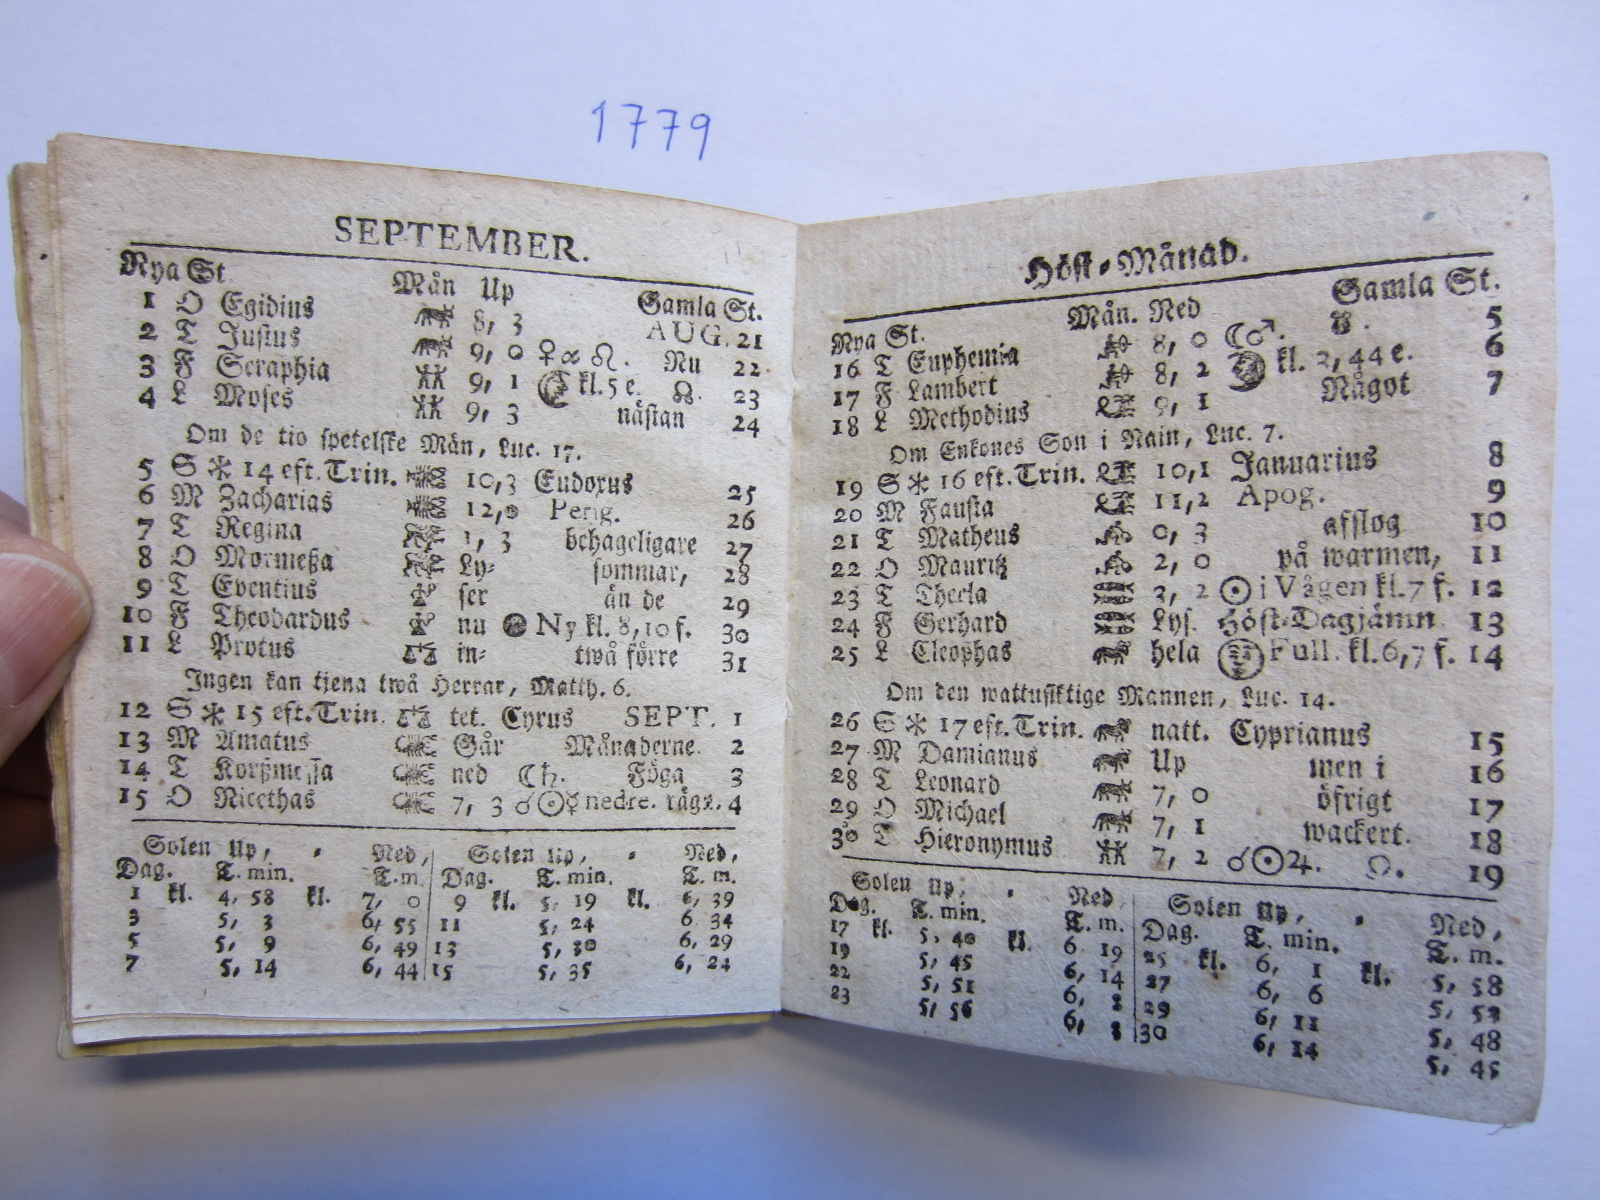 1779
SEPTEMBER.
Nya St. Mån Up Gamla St.
1 O Egidius 8, 3 AUG. 21
2 T Justus 9, 0 ♀ ☊. Nu 22
3 F Seraphia 9, 1 kl. 5 e. ☊. 23
4 L Moses 9, 3 nästan 24
Om de tio spetelske Män, Luc. 17.
5 S * 14 eft. Trin. 10,3 Eudoxus 25
6 M Zacharias 12,0 Perig. 26
7 T Regina 1, 3 behageligare 27
8 O Mormeßa Ly- sommar, 28
9 T Eventius ser än de 29
10 F Theodardus nu Ny kl. 8,10 f. 30
11 L Protus in- twå förre 31
Ingen kan tjena twå Herrar, Matth. 6.
12 S * 15 eft. Trin. tet. Cyrus SEPT. 1
13 M Amatus Går Månaderne. 2
14 T Korßmessa ned ☾♄. Föga 3
15 O Nicethas 7, 3 ☌☉☿ nedre. 4
Solen Up, Ned, Solen Up, Ned,
Dag. T. min. T. m. Dag. T. min. T. m.
1 kl. 4, 58 kl. 7, 0 9 kl. 5, 19 kl. 6, 39
3 5, 3 6, 55 11 5, 24 6 34
5 5, 9 6, 49 13 5, 30 6, 29
7 5, 14 6, 44 15 5, 35 6, 24
Höst-Månad.
Nya St. Mån. Ned Gamla St.
16 T Euphemia 8, 0 ☾♂. 5
17 F Lambert 8, 2 kl. 2, 44 e. 6
18 L Methodius 9, 1 Något 7
Om Enkones Son i Nain, Luc. 7.
19 S * 16 eft. Trin. 10,1 Januarius 8
20 M Fausta 11,2 Apog. 9
21 T Matheus 0, 3 afslog 10
22 O Mauritz 2, 0 på warmen, 11
23 T Thecla 3, 2 ☉ i Vågen kl. 7 f. 12
24 F Gerhard Lys. Höst-Dagjämn. 13
25 L Cleophas hela Full. kl. 6,7 f. 14
Om den wattusiktige Mannen, Luc. 14.
26 S * 17 eft. Trin. natt. Cyprianus 15
27 M Damianus Up men i 16
28 T Leonard 7, 0 öfrigt 17
29 O Michael 7, 1 wackert. 18
30 T Hieronymus 7, 2 ☌☉♃. ☊. 19
Solen Up, Ned, Solen Up, Ned,
Dag. T. min. T. m. Dag. T. min. T. m.
17 kl. 5, 40 kl. 6 19 25 kl. 6, 1 kl. 5, 58
19 5, 45 6, 14 27 6, 6 5, 53
22 5, 51 6, 29 6, 11 5, 48
23 5, 56 6, 30 6, 14 5, 45